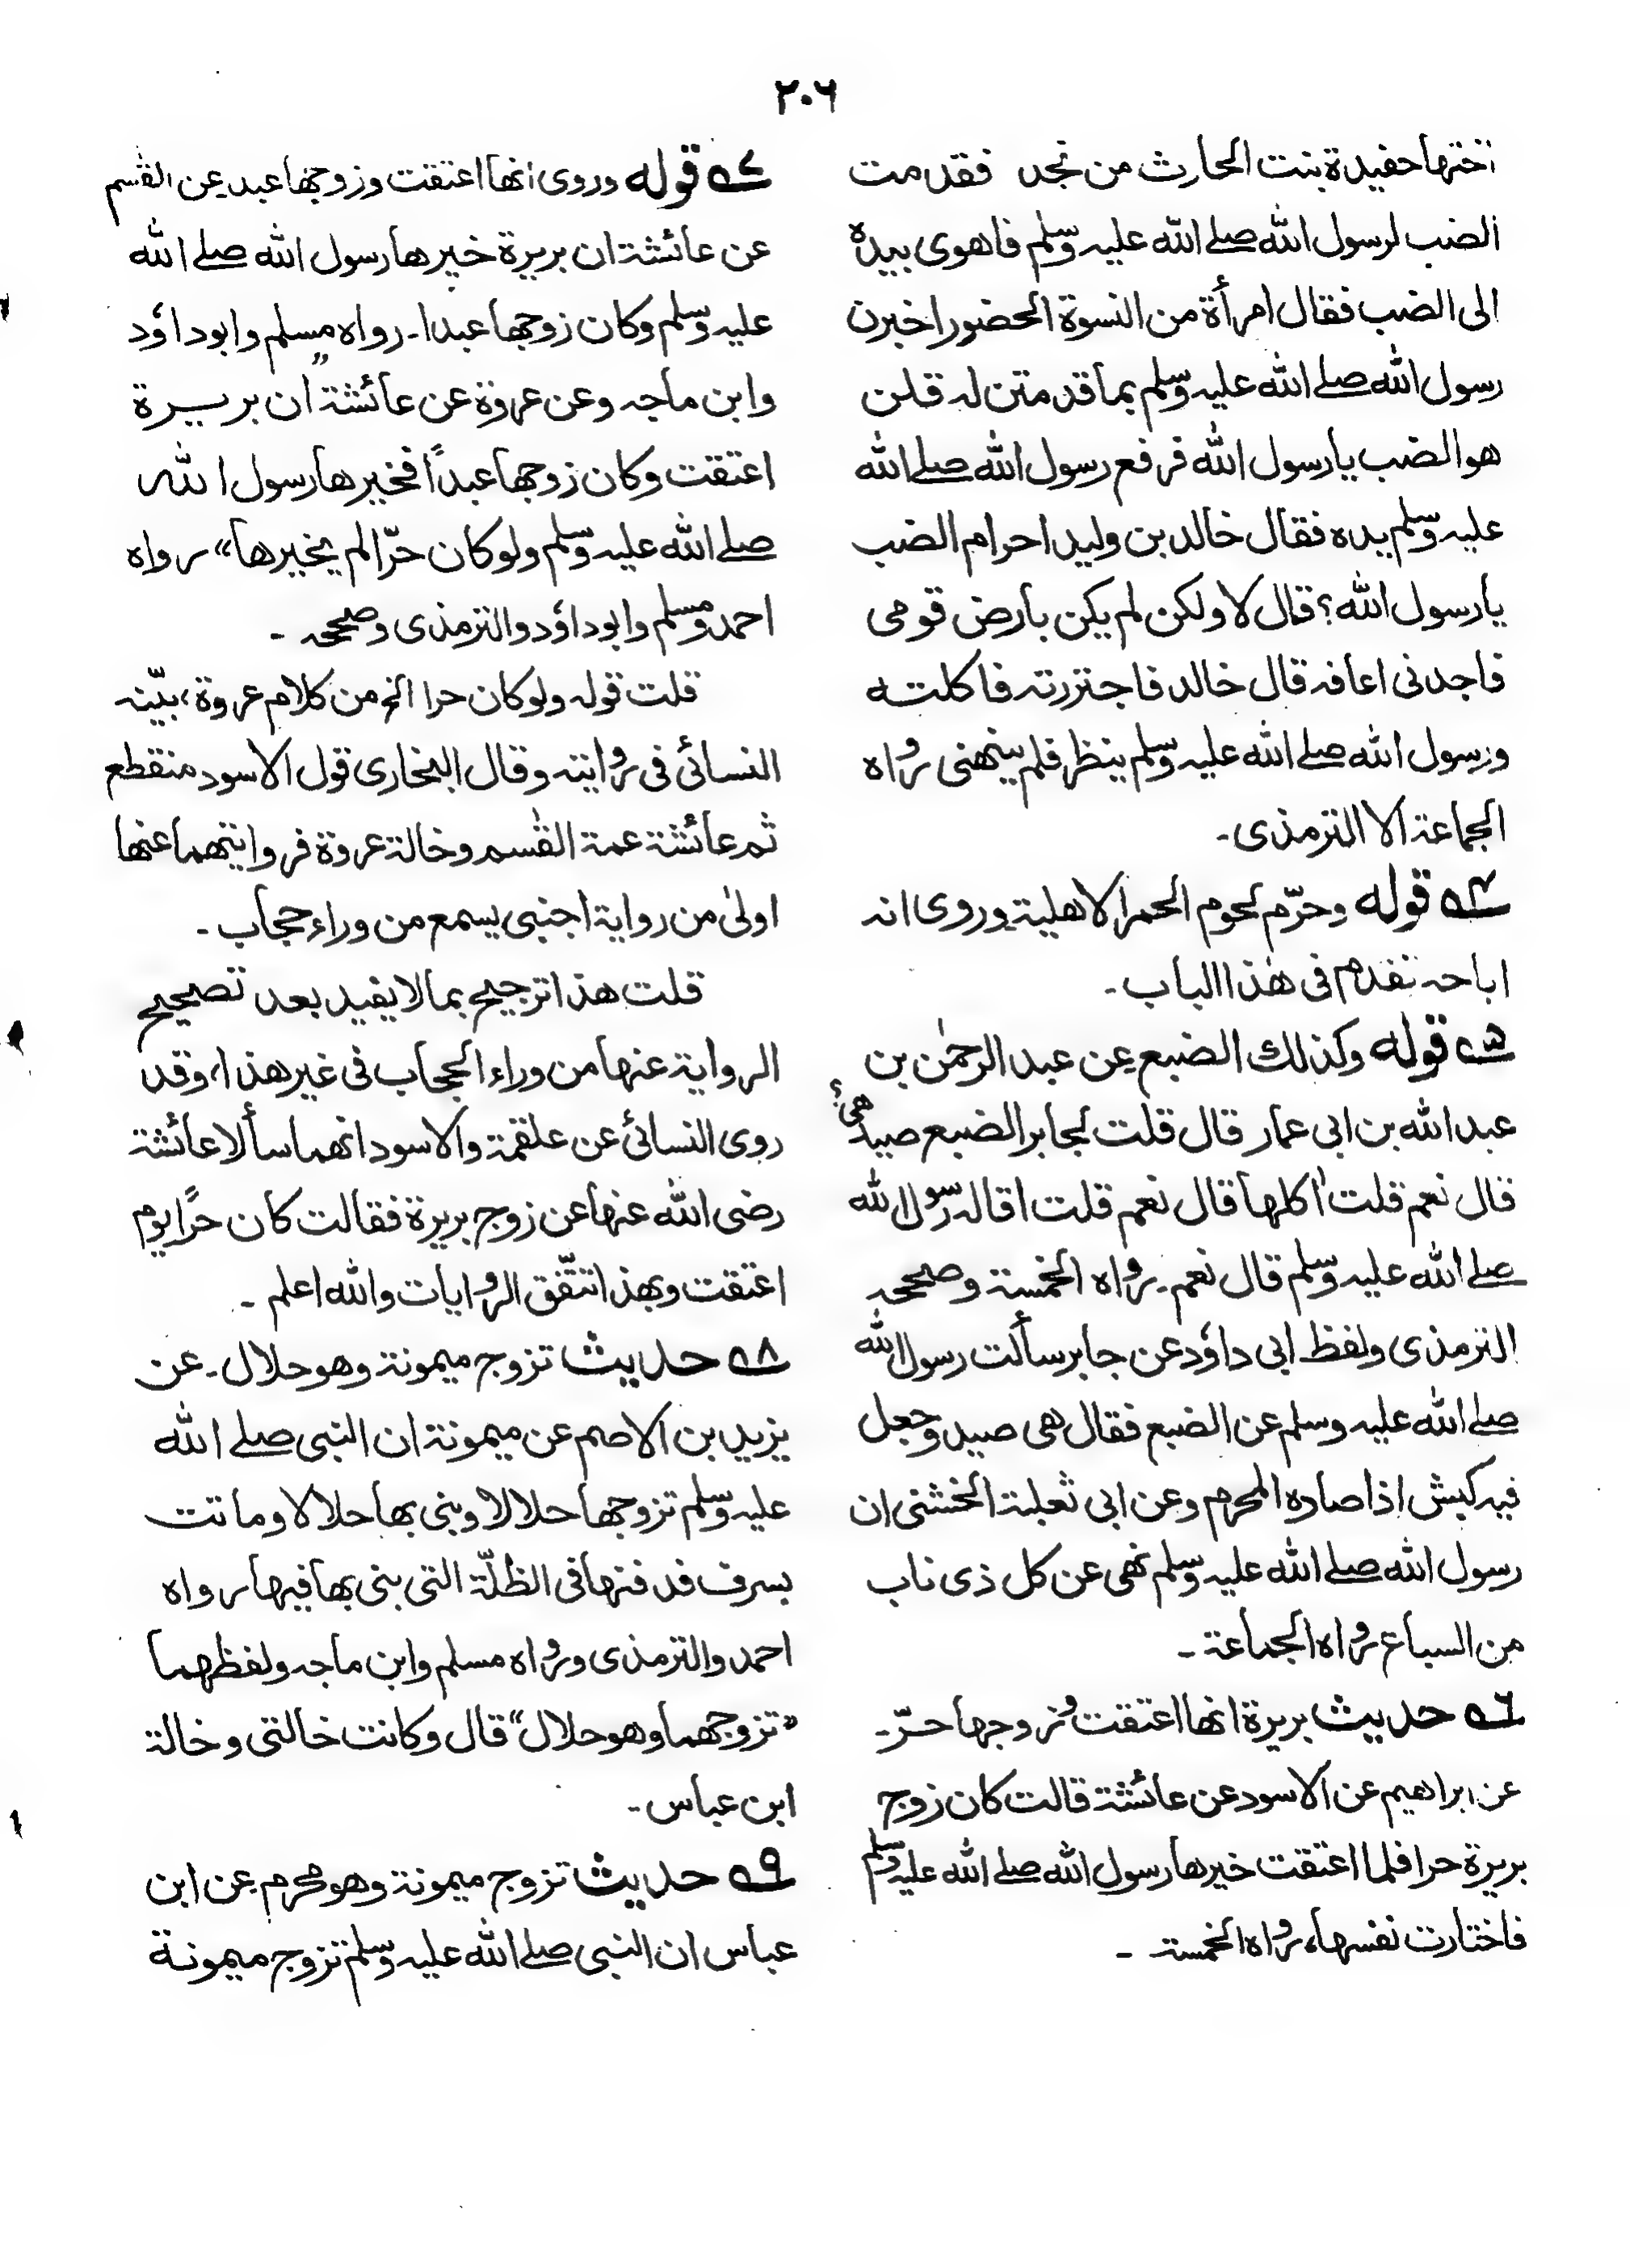 ٢٠٦
اختها حفيدة بنت الحارث من نجد فقدمت
الضب لرسول الله صلے الله عليه وسلم فاهوى بيده
الى الضب فقال امرأة من النسوة الحضور اخبرن
رسول الله صلے الله عليه وسلم بما قدمتن له قلن
هو الضب يا رسول الله فرفع رسول الله صلے الله
عليه وسلم يده فقال خالد بن وليد احرام الضب
يا رسول الله؟ قال لا ولكن لم يكن بارض قومى
فاجدنى اعافه قال خالد فاجتررته فاكلته
ورسول الله صلے الله عليه وسلم ينظر فلم ينهنى رواه
الجماعة الا الترمذى۔
٤ قوله وحرّم لحوم الحمر الاهلية وروى انه
اباحه تقدم فى هٰذا الباب۔
٥ قوله وكذلك الضبع عن عبد الرحمٰن بن
عبد الله بن ابى عمار قال قلت لجابر الضبع صيد هى؟
قال نعم قلت اٰكلها قال نعم قلت اقاله رسول الله
صلے الله عليه وسلم قال نعم۔ رواه الخمسة وصححه
الترمذى ولفظ ابى داؤد عن جابر سألت رسول الله
صلے الله عليه وسلم عن الضبع فقال هى صيد وجعل
فيه كبش اذا صاده المحرم وعن ابى ثعلبة الخشنى ان
رسول الله صلے الله عليه وسلم نهى عن كل ذى ناب
من السباع رواه الجماعة۔
٦ حديث بريرة انها اعتقت وزوجها حرّ۔
عن ابراهيم عن الاسود عن عائشة قالت كان زوج
بريرة حرا فلما اعتقت خيرها رسول الله صلے الله عليه وسلم
فاختارت نفسها، رواه الخمسة۔
٧ قوله وروى انها اعتقت وزوجها عبد عن القٰسم
عن عائشة ان بريرة خيرها رسول الله صلے الله
عليه وسلم وكان زوجها عبدا۔ رواه مسلم وابو داؤد
وابن ماجه وعن عروة عن عائشة "ان بريرة
اعتقت وكان زوجها عبداً فخيرها رسول الله
صلے الله عليه وسلم ولو كان حرّا لم يخيرها" رواه
احمد ومسلم وابو داؤد والترمذى وصححه۔
قلت قوله ولو كان حرا الخ من كلام عروة، بيّنه
النسائى فى روايته وقال البخارى قول الاسود منقطع
ثم عائشة عمة القٰسم وخالة عروة فروايتهما عنها
اولىٰ من رواية اجنبى يسمع من وراء حجاب۔
قلت هذا ترجيح بما لا يفيد بعد تصحيح
الرواية عنها من وراء الحجاب فى غير هذا، وقد
روى النسائى عن علقمة والاسود انهما سألا عائشة
رضى الله عنها عن زوج بريرة فقالت كان حرًا يوم
اعتقت وبهذا تتّفق الروايات والله اعلم۔
٨ حديث تزوج ميمونة وهو حلال۔ عن
يزيد بن الاصم عن ميمونة ان النبى صلے الله
عليه وسلم تزوجها حلالا وبنى بها حلالا وماتت
بسرف فدفنتها فى الظلّة التى بنى بها فيها رواه
احمد والترمذى ورواه مسلم وابن ماجه ولفظهما
"تزوجهما وهو حلال" قال وكانت خالتى وخالة
ابن عباس۔
٩ حديث تزوج ميمونة وهو محرم عن ابن
عباس ان النبى صلے الله عليه وسلم تزوج ميمونة